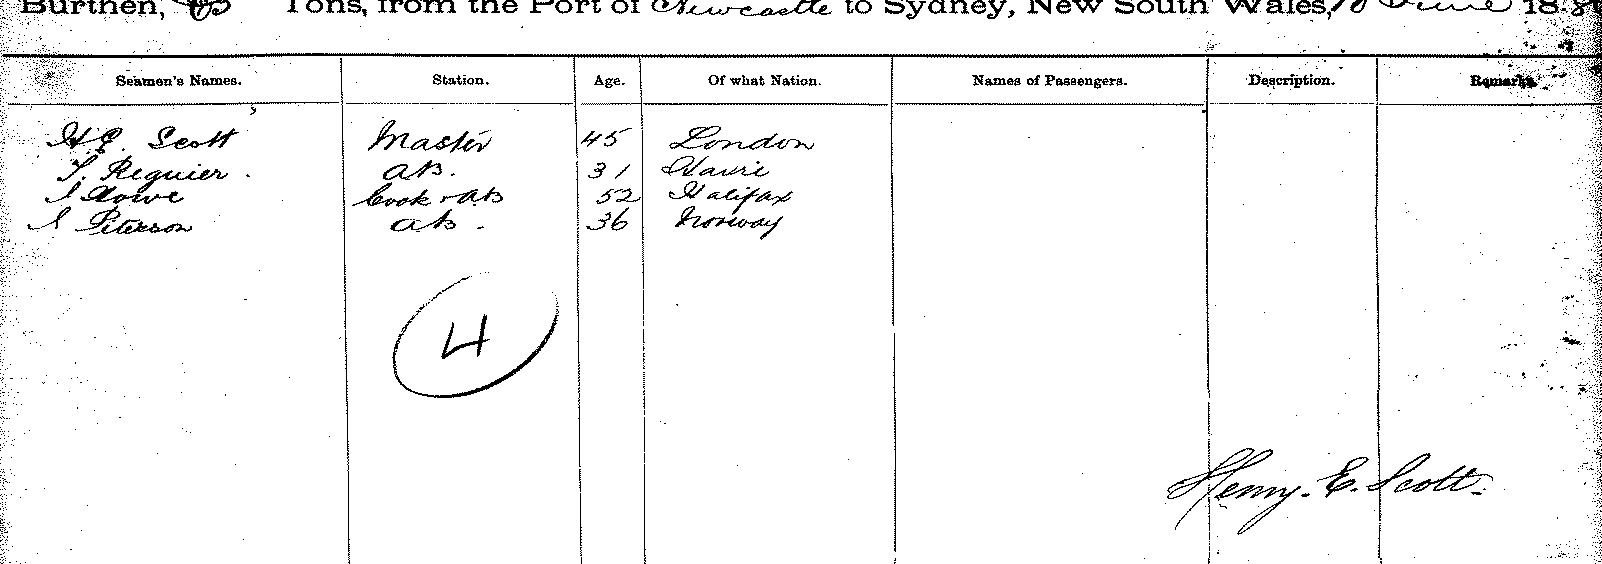 Burthen, Tons, from the Port of Newcastle to Sydney, New South Wales, 10 June 188
Seamen's Names. Station. Age. Of what Nation. Names of Passengers. Description. Remarks.
H E. Scott Master 45 London
T. Reguier. AB. 31 Havre
J Howe Cook & AB 52 Halifax
J Peterson AB. 36 Norway
4
Henry. E. Scott.